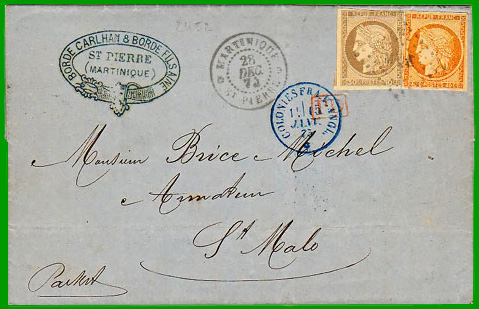 BORDE CARLHAN & BORDE FILS AINÉ
ST PIERRE
(MARTINIQUE)
MARTINIQUE
28
DEC.
72
ST PIERRE
REPUB. FRANC.
REPUB. FRANC.
COLONIES FR.
JANV.
73
Monsieur Brice Michel
Armateur
St Malo